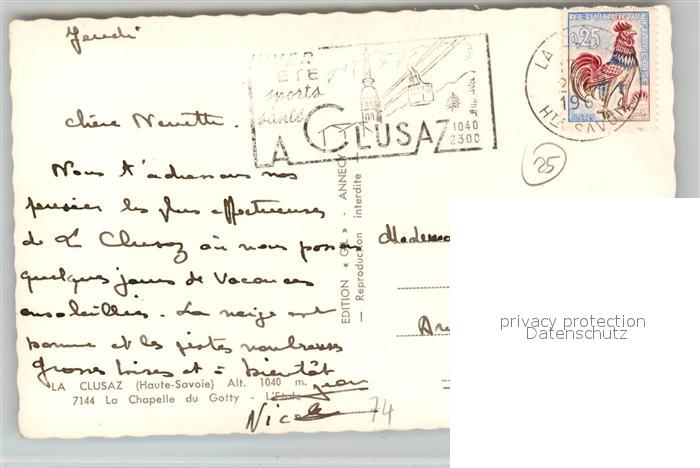 Jeudi
HIVER
ÉTÉ
sports
santé
LA CLUSAZ
1040
2300
REPUBLIQUE FRANÇAISE
0,25
LA
196
HTE SAVOIE
25
chère Nenette.
Nous t'adressons nos
pensées les plus affectueuses
de La Clusaz où nous passons
quelques jours de vacances
ensoleillées. La neige est
bonne et les pistes nombreuses
Grosses bises et à bientôt
Jean
Nicole
74
Mademoi
EDITION « GIL » - ANNECY
Reproduction interdite
LA CLUSAZ (Haute-Savoie) Alt. 1040 m.
7144 La Chapelle du Gotty - L'Etale
privacy protection
Datenschutz